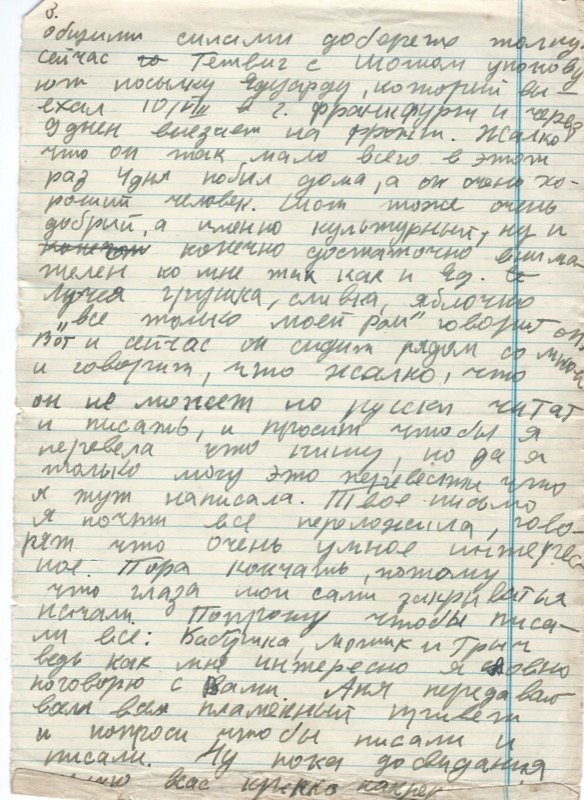 3.
общими силами доберете толку
сейчас Гетвиг с Шотом упаковy
ют посылку Эдуарду, который вы-
ехал 10/VIII в г. Франкфурт и через
9 дней выезжает на фронт. Жалко
что он так мало всего в этот
раз 4 дня побыл дома, а он очень хо-
роший человек. Шот тоже очень
добрий, а именно культурный, ну и
конечно достаточно внима-
телен ко мне так как и Эд.
Лучшая грушка, сливка, яблочко
"все только моей Рой" говорит он.
Вот и сейчас он сидит рядом со мной
и говорит, что жалко, что
он не может по русски читат
и писать, и просит чтобы я
перевела что пишу, но да я
только могу это перевести что
я тут написала. Твое письмо
я почти все переложила, гово-
рят что очень умное интерес-
ное. Пора кончать, потому
что глаза мои сами закрыватья
начали. Попрошу чтобы писа-
ли все: Бабушка, Мотик и Грыч
ведь как мне интересно я словно
поговорю с Вами. Аня передават
вам всем пламенный привет
и попроси чтобы писали и
писали. Ну пока до свидания
вас крепко